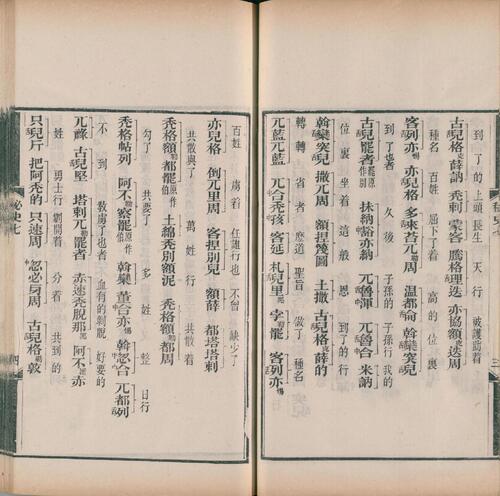 到了的 上頭 長生 天行 被護助着
古兒格薛訥 禿剌 蒙客 騰格理迭 亦協額迭周
種名 百姓 屈下了着 高的 位裏
客列亦 亦兒格 多來苔兀周 溫都侖 斡欒突兒
到了也者 久後 子孫的 子孫行 我的
古兒罷者 抹納豁亦納 兀魯渾 兀魯合 米訥
位裏 坐着 這般 恩 到了的行
斡欒突兒 撒兀周 額捏篾圖 土撒 古兒格薛的
轉轉 省者 麼道 聖旨 做了 種名
兀藍兀藍 兀合禿孩 客延 札兒里 孛罷 客列亦
百姓 虜着 任誰行也 不曾 缺少了
亦兒格 倒兀里周 客捏別兒 額薛 都塔塔剌
共散與了 萬 姓行 共散着
禿格額都罷 土綿禿別額泥 禿格額都周
勾了 共要了 多 姓 整 日行
禿格帖列 阿不察罷 斡欒 董合亦 斡忽台 兀都列
不 到 教虜了也者 血有的剝脫 好要的
兀祿 古兒堅 塔剌兀罷者 赤速禿脫那 阿不亦
姓 勇士行 分着 共到的
只兒斤 把阿禿的 只速周 忽必牙周 古兒格敦
祕史七